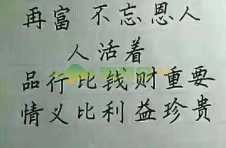 再富 不忘恩人
人活着
品行比钱财重要
情义比利益珍贵